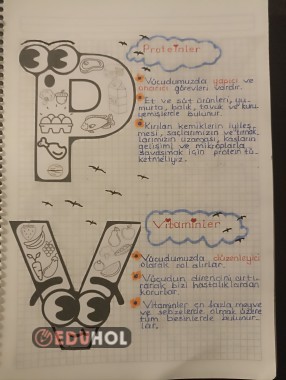 Proteinler
Vücudumuzda yapıcı ve
onarıcı görevleri vardır.
Et ve süt ürünleri, yu-
murta, balık, tavuk ve kuru
yemişlerde bulunur.
Kırılan kemiklerin iyileş-
mesi, saçlarımızın ve tırnak-
larımızın uzaması, kasların
gelişimi ve mikroplarla
savaşmak için protein tü-
ketmeliyiz.
Vitaminler
Vücudumuzda düzenleyici
olarak rol alırlar.
Vücudun direncini artı-
rarak bizi hastalıklardan
korurlar.
Vitaminler en fazla meyve
ve sebzelerde olmak üzere
tüm besinlerde bulunur-
lar.
EDUHOL